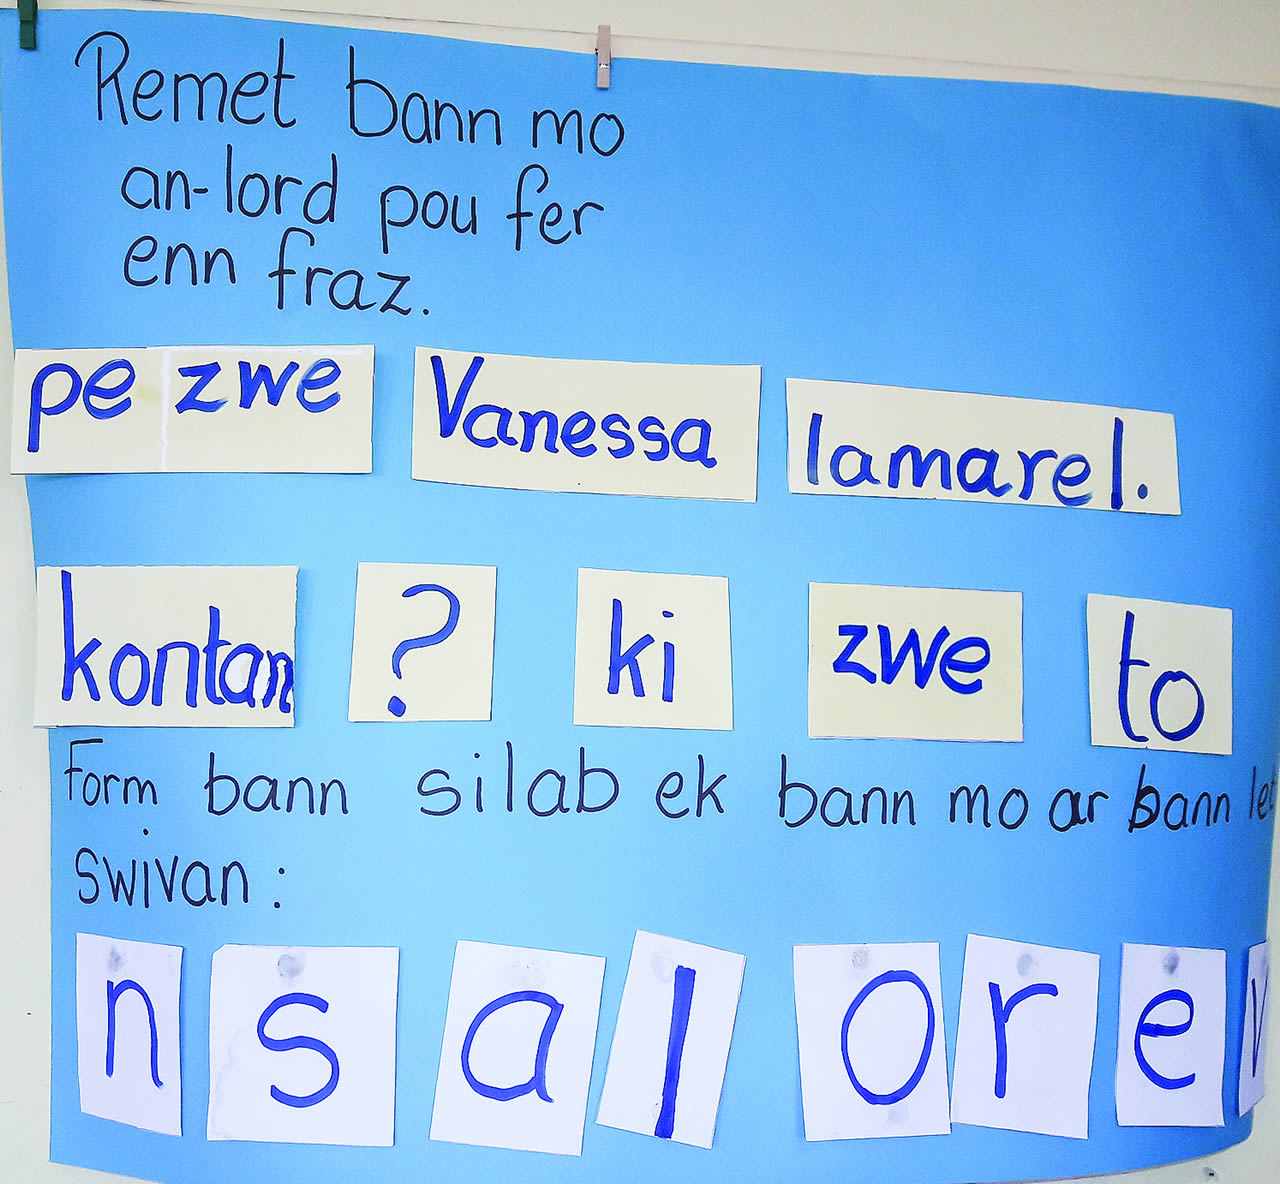 Remet bann mo
an-lord pou fer
enn fraz.
pe zwe Vanessa lamarel.
kontan ? ki zwe to
Form bann silab ek bann mo ar bann
swivan :
n s a l o r e